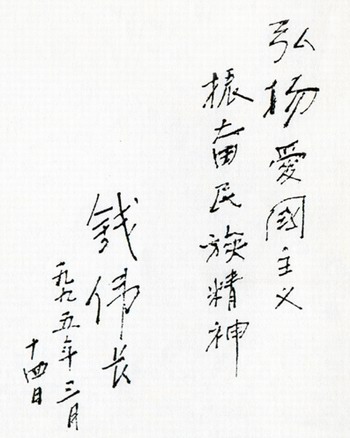 弘杨愛國主义
振奋民族精神
錢伟长
一九九五年三月
十四日